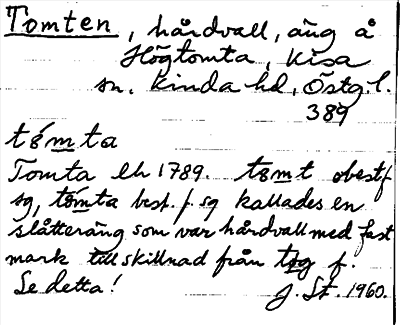 Tomten, hårdvall, äng å
Högtomta, Kisa
sn. Kinda hd, Östg.l.
389
tómta
Tomta Lh 1789. tomt obest f
sg, tómta best. f. sg kallades en
slåtteräng som var hårdvall med fast
mark till skillnad från tog f.
Se detta! J. St. 1960.